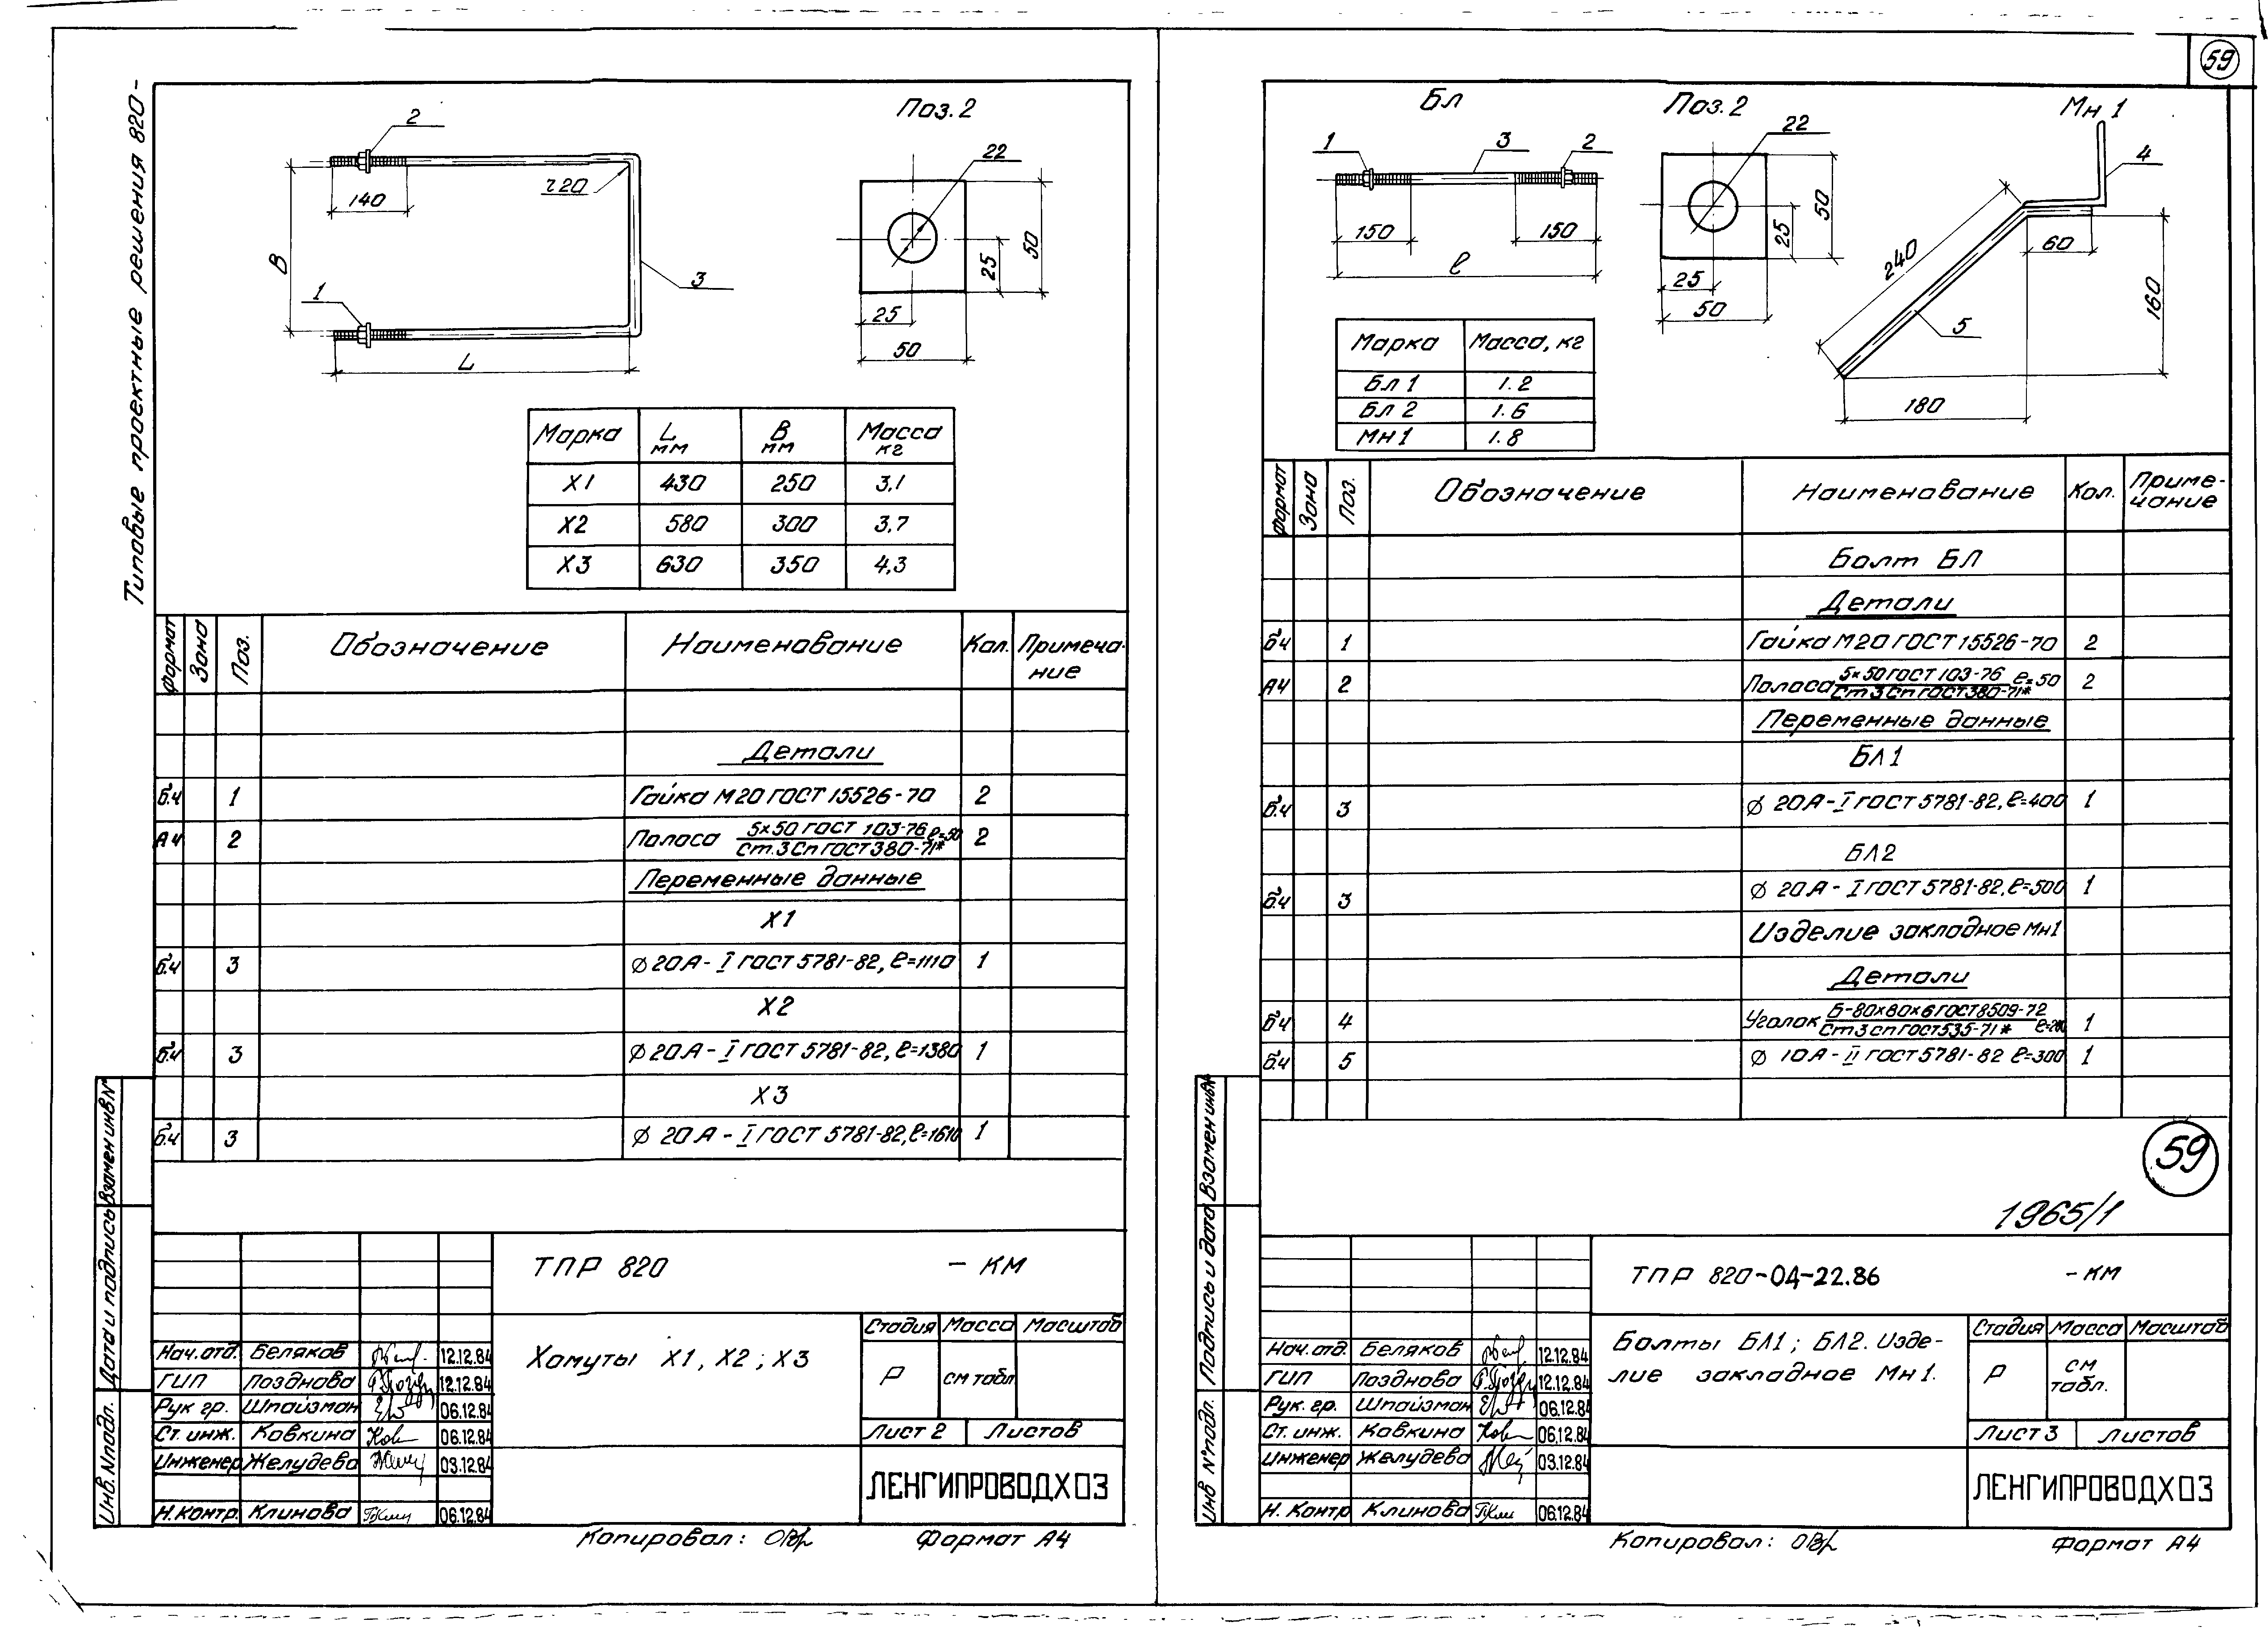 59
Типовые проектные решения 820-
2
Поз.2
22
140
r20
B
3
1
L
25
50
25
50
Марка L мм B мм Масса кг
X1 430 250 3,1
X2 580 300 3,7
X3 630 350 4,3
Формат Зона Поз. Обозначение Наименование Кол. Примеча-
ние
Детали
б.ч 1 Гайка М20 ГОСТ 15526-70 2
А4 2 Полоса 5×50 ГОСТ 103-76 ℓ=50 2
Ст.3 Сп ГОСТ 380-71*
Переменные данные
X1
б.ч 3 ϕ 20А-I ГОСТ 5781-82, ℓ=1110 1
X2
б.ч 3 ϕ 20А-I ГОСТ 5781-82, ℓ=1380 1
X3
б.ч 3 ϕ 20А-I ГОСТ 5781-82, ℓ=1610 1
Взамен инв №
Дата и подпись
Инв. № подл.
ТПР 820 - КМ
Хомуты X1, X2; X3
Стадия Масса Масштаб
Р см табл
Лист 2 Листов
ЛЕНГИПРОВОДХОЗ
Нач.отд. Беляков 12.12.84
ГИП Позднова 12.12.84
Рук гр. Шпайзман 06.12.84
Ст. инж. Ковкина 06.12.84
Инженер Желудева 03.12.84
Н.контр. Клинова 06.12.84
Копировал: Формат А4
Бл
Поз.2
Мн 1
1
3
2
22
4
150
150
ℓ
25
50
25
50
240
60
160
5
180
Марка Масса, кг
Бл 1 1.2
Бл 2 1.6
Мн 1 1.8
Формат Зона Поз. Обозначение Наименование Кол. Приме-
чание
Болт БЛ
Детали
б.ч 1 Гайка М20 ГОСТ 15526-70 2
А4 2 Полоса 5×50 ГОСТ 103-76 ℓ=50 2
Ст.3 Сп ГОСТ 380-71*
Переменные данные
БЛ1
б.ч 3 ϕ 20А-I ГОСТ 5781-82, ℓ=400 1
БЛ2
б.ч 3 ϕ 20А-I ГОСТ 5781-82, ℓ=500 1
Изделие закладное Мн1
Детали
б.ч 4 Уголок Б-80×80×6 ГОСТ 8509-72 1
Ст 3 сп ГОСТ 535-71*
б.ч 5 ϕ 10А-II ГОСТ 5781-82 ℓ=300 1
59
1965/1
Взамен инв №
Подпись и дата
Инв № подл.
ТПР 820-04-22.86 - КМ
Болты БЛ1; БЛ2. Изде-
лие закладное Мн1.
Стадия Масса Масштаб
Р см
табл.
Лист 3 Листов
ЛЕНГИПРОВОДХОЗ
Нач.отд. Беляков 12.12.84
ГИП Позднова 12.12.84
Рук. гр. Шпайзман 06.12.84
Ст. инж. Ковкина 06.12.84
Инженер Желудева 03.12.84
Н. Контр Клинова 06.12.84
Копировал: Формат А4